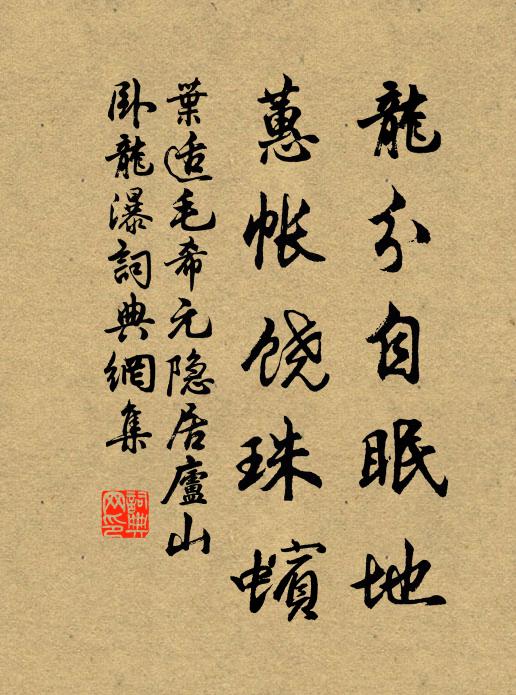 龍分自眠地
蕙帳饒珠蠙
葉适毛希元隐居廬山
卧龍瀑詞典網集
詞典網印